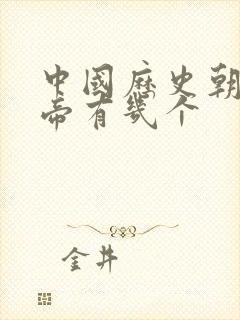 中國歷史朝
帝有幾个
金井